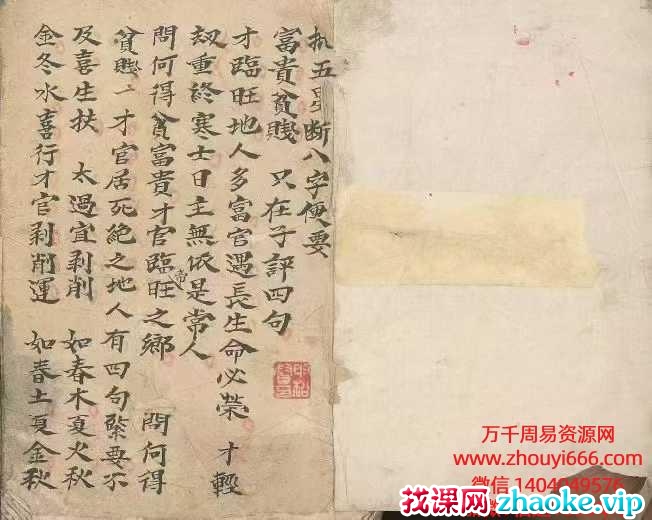 批五星断八字便要
富貴貧賤　只在子評四句
才臨旺地人多富官遇長生命必榮　才輕
劫重終寒士日主無依是常人
問何得貧富貴才官臨帝旺之鄉　問何得
貧賤二才官居死絕之地人有四句緊要不
及喜生扶　太過宜剥削　如春木夏火秋
金冬水喜行才官剥削運　如春土夏金秋
万千周易资源网
www.zhouyi666.com
微信 1404049576
找课网zhaoke.vip